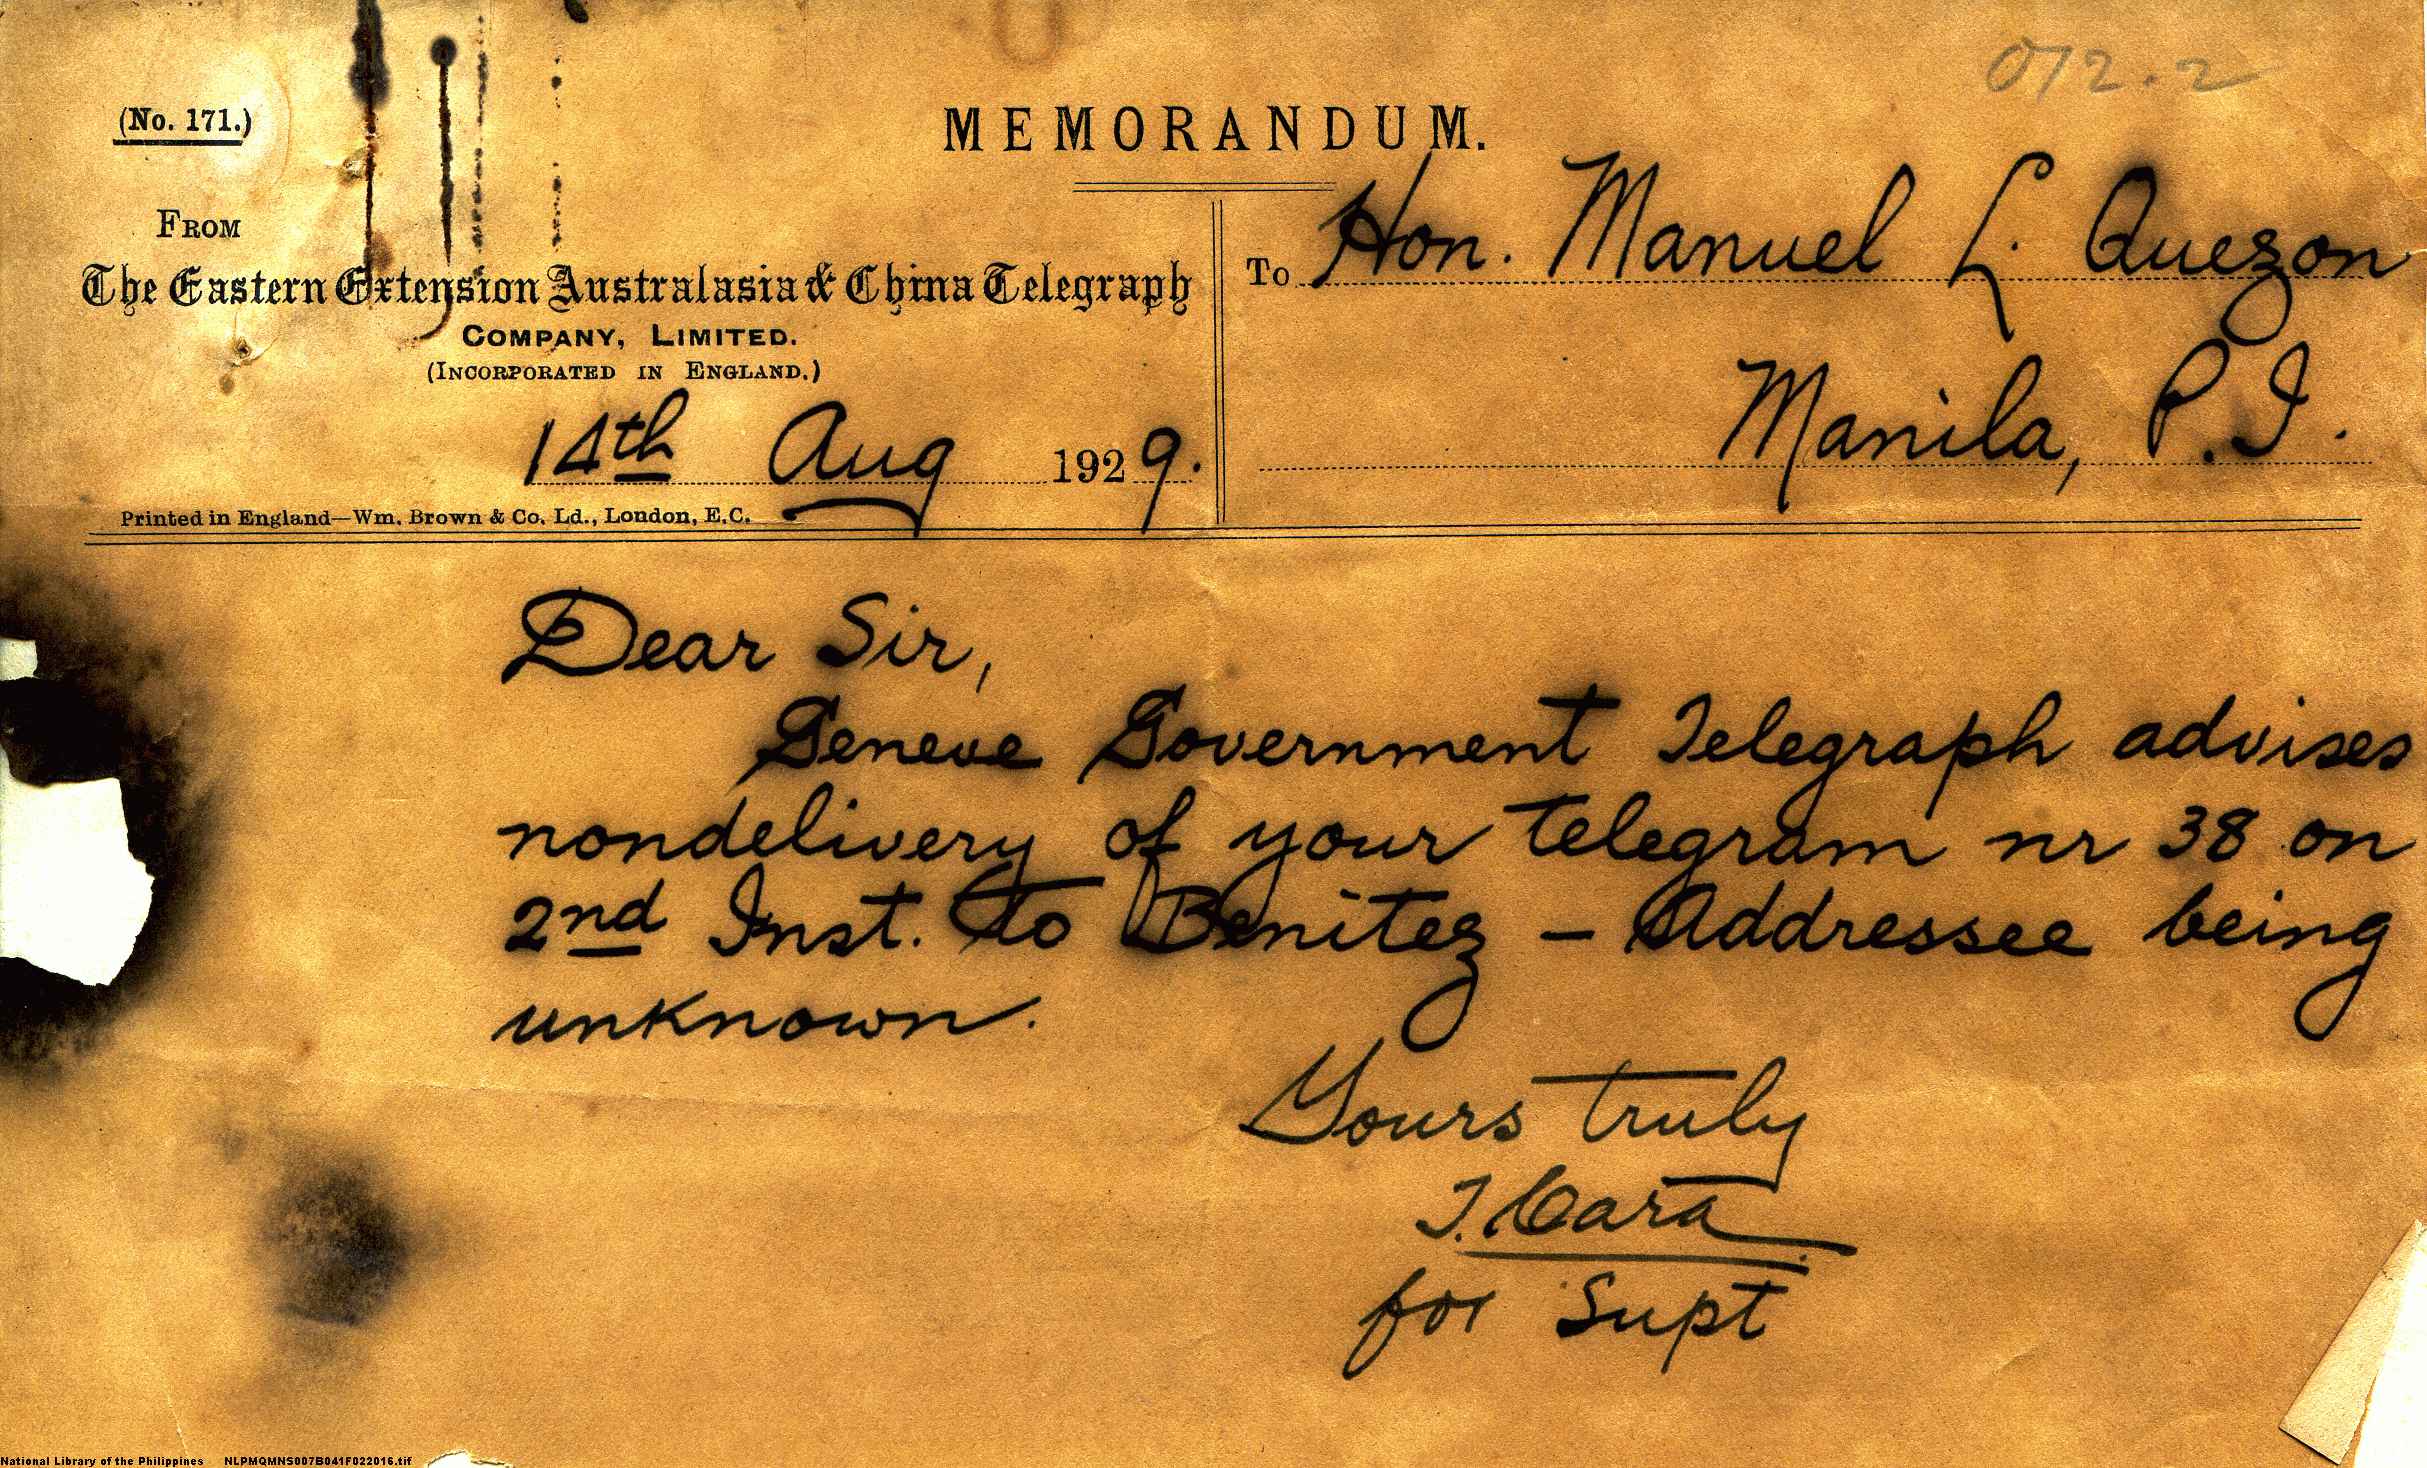 072.2
(No. 171.)
MEMORANDUM.
FROM
The Eastern Extension Australasia & China Telegraph
COMPANY, LIMITED.
(INCORPORATED IN ENGLAND.)
14th Aug 1929.
Printed in England—Wm. Brown & Co. Ld., London, E.C.
To Hon. Manuel L. Quezon
Manila, P.I.
Dear Sir,
Geneve Government Telegraph advises
nondelivery of your telegram nr 38 on
2nd Inst. to Benitez – Addressee being
unknown.
Yours truly
T. Cara
for Supt
National Library of the Philippines NLPMQMNS007B041F022016.tif